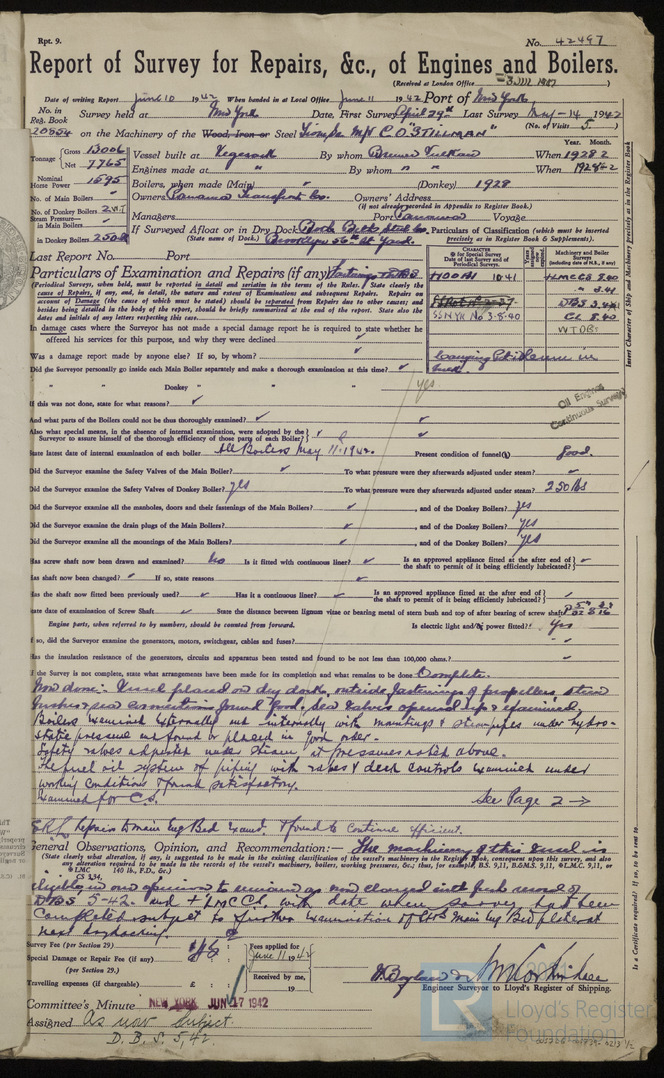 Rpt. 9.
No. 42497
Report of Survey for Repairs, &c., of Engines and Boilers.
(Received at London Office
Date of writing Report June 10 1942 When handed in at Local Office June 11 1942 Port of New York
No. in Reg. Book Survey held at New York Date, First Survey April 29th Last Survey May-14 1942
(No. of Visits 5.)
20554 on the Machinery of the Wood, Iron or Steel M/V C.O. STILLMAN"
Tonnage Gross 13006 Net 7765
Vessel built at Vegesack By whom Bremer Vulkan When 1928 2
Year. Month.
Engines made at " By whom " " When 1928-2
Nominal Horse Power 1595
Boilers, when made (Main) (Donkey) 1928
No. of Main Boilers
Owners Panama Transport Co. Owners' Address
(if not already recorded in Appendix to Register Book.)
No. of Donkey Boilers 2 WT
Managers Port Panama Voyage
Steam Pressure in Main Boilers
in Donkey Boilers 250 lb
If Surveyed Afloat or in Dry Dock Both Beth Steel Co.
(State name of Dock.) Brooklyn 56th St Yard.
Particulars of Classification (which must be inserted precisely as in Register Book & Supplements).
Last Report No. Port
CHARACTER
Date of last Survey and of Periodical Surveys.
Machinery and Boiler Surveys
+100A1 10.41
+LMC CS 8.40
" 3.41
SSNYK No 3-8.40
DBS 3.41
CL 8.40
WTDBs
Carrying Petroleum in bulk.
Particulars of Examination and Repairs (if any)
(Periodical Surveys, when held, must be reported in detail and seriatim in the terms of the Rules. State clearly the cause of Repairs, if any, and, in detail, the nature and extent of Examinations and subsequent Repairs. Repairs on account of Damage (the cause of which must be stated) should be separated from Repairs due to other causes; and besides being detailed in the body of the report, should be briefly summarised at the end of the report. State also the dates and initials of any letters respecting this case.)
In damage cases where the Surveyor has not made a special damage report he is required to state whether he offered his services for this purpose, and why they were declined
Was a damage report made by anyone else? If so, by whom?
Did the Surveyor personally go inside each Main Boiler separately and make a thorough examination at this time?
" " Donkey " " " yes
Oil Engines
Continuous Survey
If this was not done, state for what reasons?
And what parts of the Boilers could not be thus thoroughly examined?
Also what special means, in the absence of internal examination, were adopted by the Surveyor to assure himself of the thorough efficiency of those parts of each Boiler?
State latest date of internal examination of each boiler All Boilers May 11-1942. Present condition of funnel(s) Good.
Did the Surveyor examine the Safety Valves of the Main Boiler? To what pressure were they afterwards adjusted under steam?
Did the Surveyor examine the Safety Valves of Donkey Boiler? yes To what pressure were they afterwards adjusted under steam? 250 lbs
Did the Surveyor examine all the manholes, doors and their fastenings of the Main Boilers? , and of the Donkey Boilers? yes
Did the Surveyor examine the drain plugs of the Main Boilers? , and of the Donkey Boilers? yes
Did the Surveyor examine all the mountings of the Main Boilers? , and of the Donkey Boilers? yes
Has screw shaft now been drawn and examined? No Is it fitted with continuous liner? Is an approved appliance fitted at the after end of the shaft to permit of it being efficiently lubricated?
Has shaft now been changed? If so, state reasons
Has the shaft now fitted been previously used? Has it a continuous liner? Is an approved appliance fitted at the after end of the shaft to permit of it being efficiently lubricated?
State date of examination of Screw Shaft State the distance between lignum vitæ or bearing metal of stern bush and top of after bearing of screw shaft
Engine parts, when referred to by numbers, should be counted from forward. Is electric light and/or power fitted? Yes
If so, did the Surveyor examine the generators, motors, switchgear, cables and fuses?
Has the insulation resistance of the generators, circuits and apparatus been tested and found to be not less than 100,000 ohms?
If the Survey is not complete, state what arrangements have been made for its completion and what remains to be done Complete.
Now done:- Vessel placed on dry dock, outside fastenings of propellers, stern
bushes, sea connections found good. Sea valves opened up & examined.
Boilers examined externally and internally with mountings & steampipes under hydro-
static pressure and found or placed in good order.
Safety valves adjusted under steam at pressures noted above.
The fuel oil system of piping with valves & deck controls examined under
working conditions & found satisfactory.
Examined for CS. See Page 2 →
Repairs to main Eng Bed Exam'd & found to continue efficient.
General Observations, Opinion, and Recommendation:— The machinery of this vessel is
(State clearly what alteration, if any, is suggested to be made in the existing classification of the vessel's machinery in the Register Book, consequent upon this survey, and also any alteration required to be made in the records of the vessel's machinery, boilers, working pressures, &c.; thus, for example, B.S. 9,11, B.&M.S. 9,11, LMC. 9,11, or LMC CS 3,34, 140 lb., F.D., &c.)
eligible in our opinion to remain as now classed with fresh record of
DBS 5-42. and +LMC CS. with date when survey has been
completed subject to further examination of Main Eng Bed plate at
next drydocking.
Survey Fee (per Section 29)
Special Damage or Repair Fee (if any)
(per Section 29.)
Travelling expenses (if chargeable) £ :
Fees applied for
June 11 1942
Received by me,
19
Engineer Surveyor to Lloyd's Register of Shipping.
Committee's Minute NEW YORK JUN 17 1942
Assigned As now Subject.
D.B.S. 5,42.
Insert Character of Ship and Machinery precisely as in the Register Book
Is a Certificate required? If so, to be sent to
LR
Lloyd's Register
Foundation